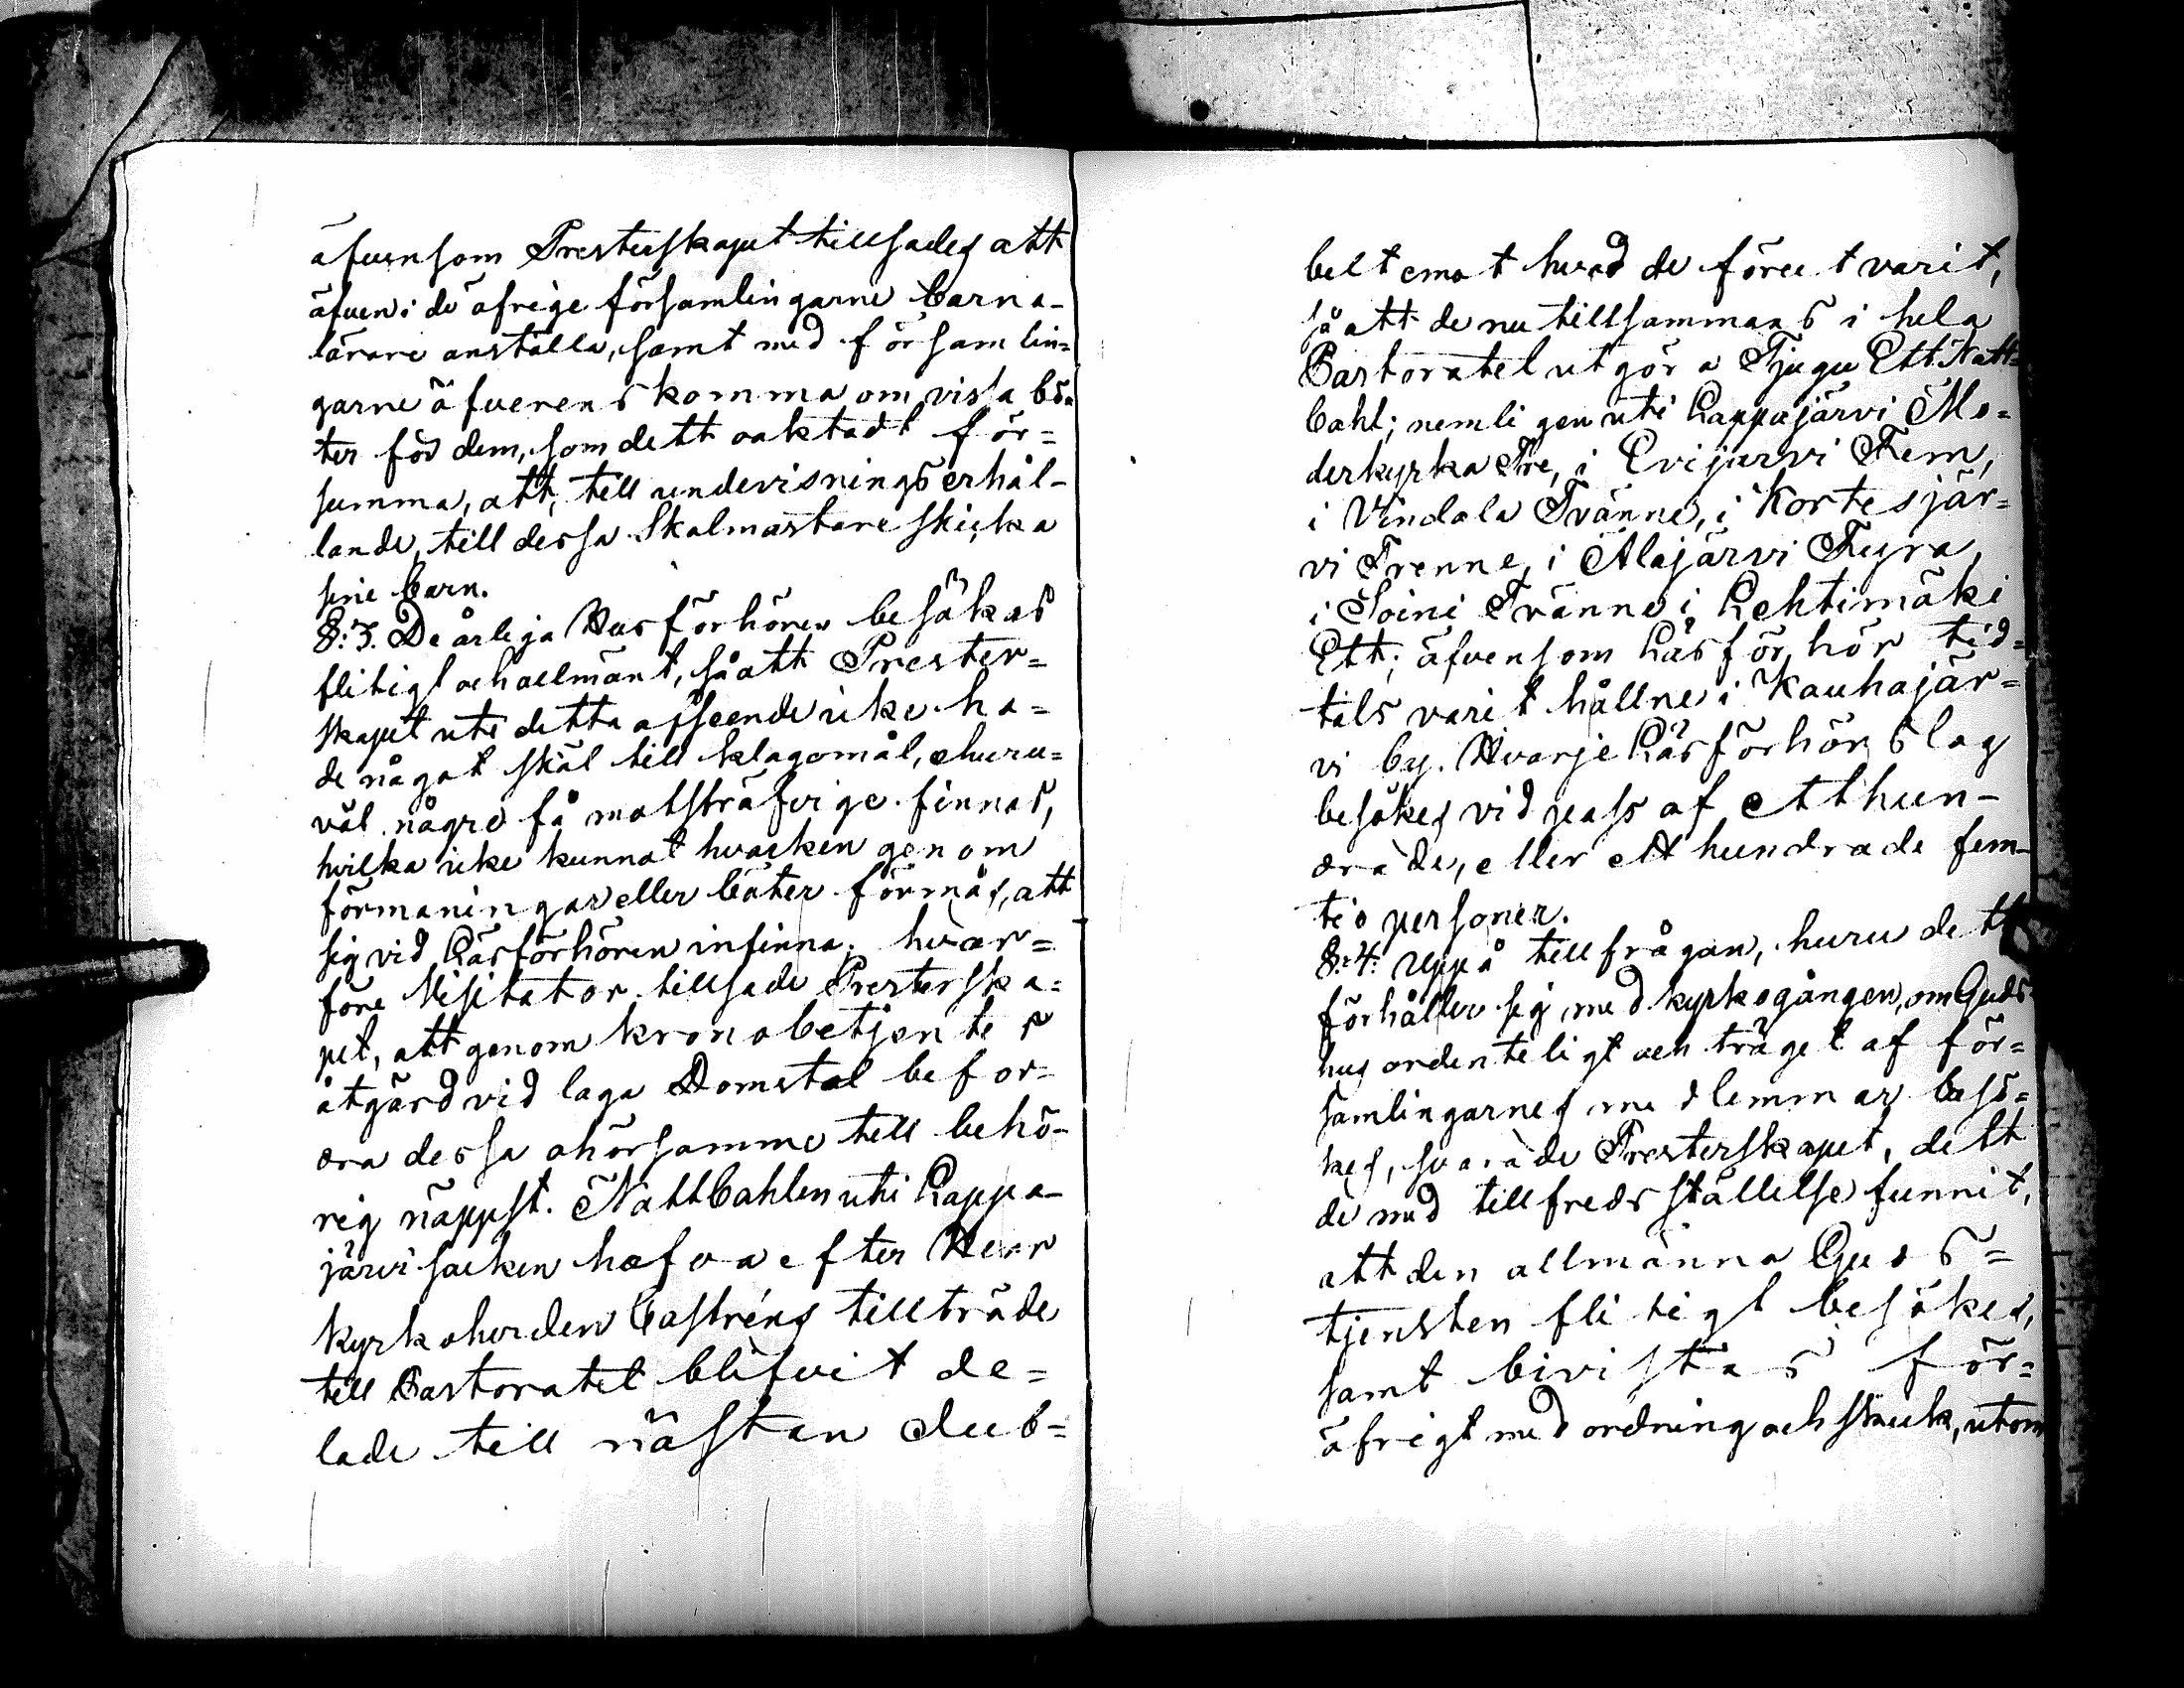 äfvensom Presterskapet tillsades att
äfven i de öfrige församlingarne barna-
lärare anställa, samt med församlin=
garne öfverenskomma om vissa bö-
ter för dem, som dett oaktadt för=
summa, att, till undervisnings erhål-
lande, till dessa Skolmästare skicka
sine barn.
§: 3. De årliga Husförhören besökas
flitigt och allmänt, så att Prester=
skapet uti detta afseende icke ha=
de något skäl till klagomål, churu=
väl några få motsträfvige finnas,
hvilka icke kunnat hvarken genom
förmaningar eller böter förmås, att
sig vid Läsförhören infinna; hvar=
före Visitator tillsade Presterska=
pet, att genom kronobetjentes
åtgärd vid laga Domstol befor=
dra dessa ohörsamme till behö-
rig näppst. Nattbahlen uti Lappa-
järvi socken hafva efter Herr
Kyrkoherden Castréns tillträde
till Pastoratet blifvit de=
lade till nästan dub=
belt emot hvad de förut varit,
så att de nu tillsammans i hela
Pastoratet utgöra Tjugu Ett Natt=
bahl; nemligen uti Lappajärvi Mo=
derkyrka Tre, i Evijärvi Fem,
i Vindala Tvänne, i Kortesjär=
vi Trenne, i Alajärvi Fyra,
i Soini Tvänne i Lehtimäki
Ett; äfvensom Läsförhör tid=
tals varit hållne i Kauhajär=
vi by. Hvarje Läsförhörslag
besökes vid pass af etthun-
drade, eller ett hundrade fem-
tio personer.
§: 4: Uppå tillfrågan, huru dett
förhåller sig med kyrkogången, om Guds
hus ordenteligt och träget af för=
samlingarnes medlemmar besö=
kes, svarade Presterskapet, dett
de med tillfredsställelse funnit,
att den allmänna Guds=
tjensten flitigt besökes,
samt bivistas för=
öfrigt med ordning och skick, utom